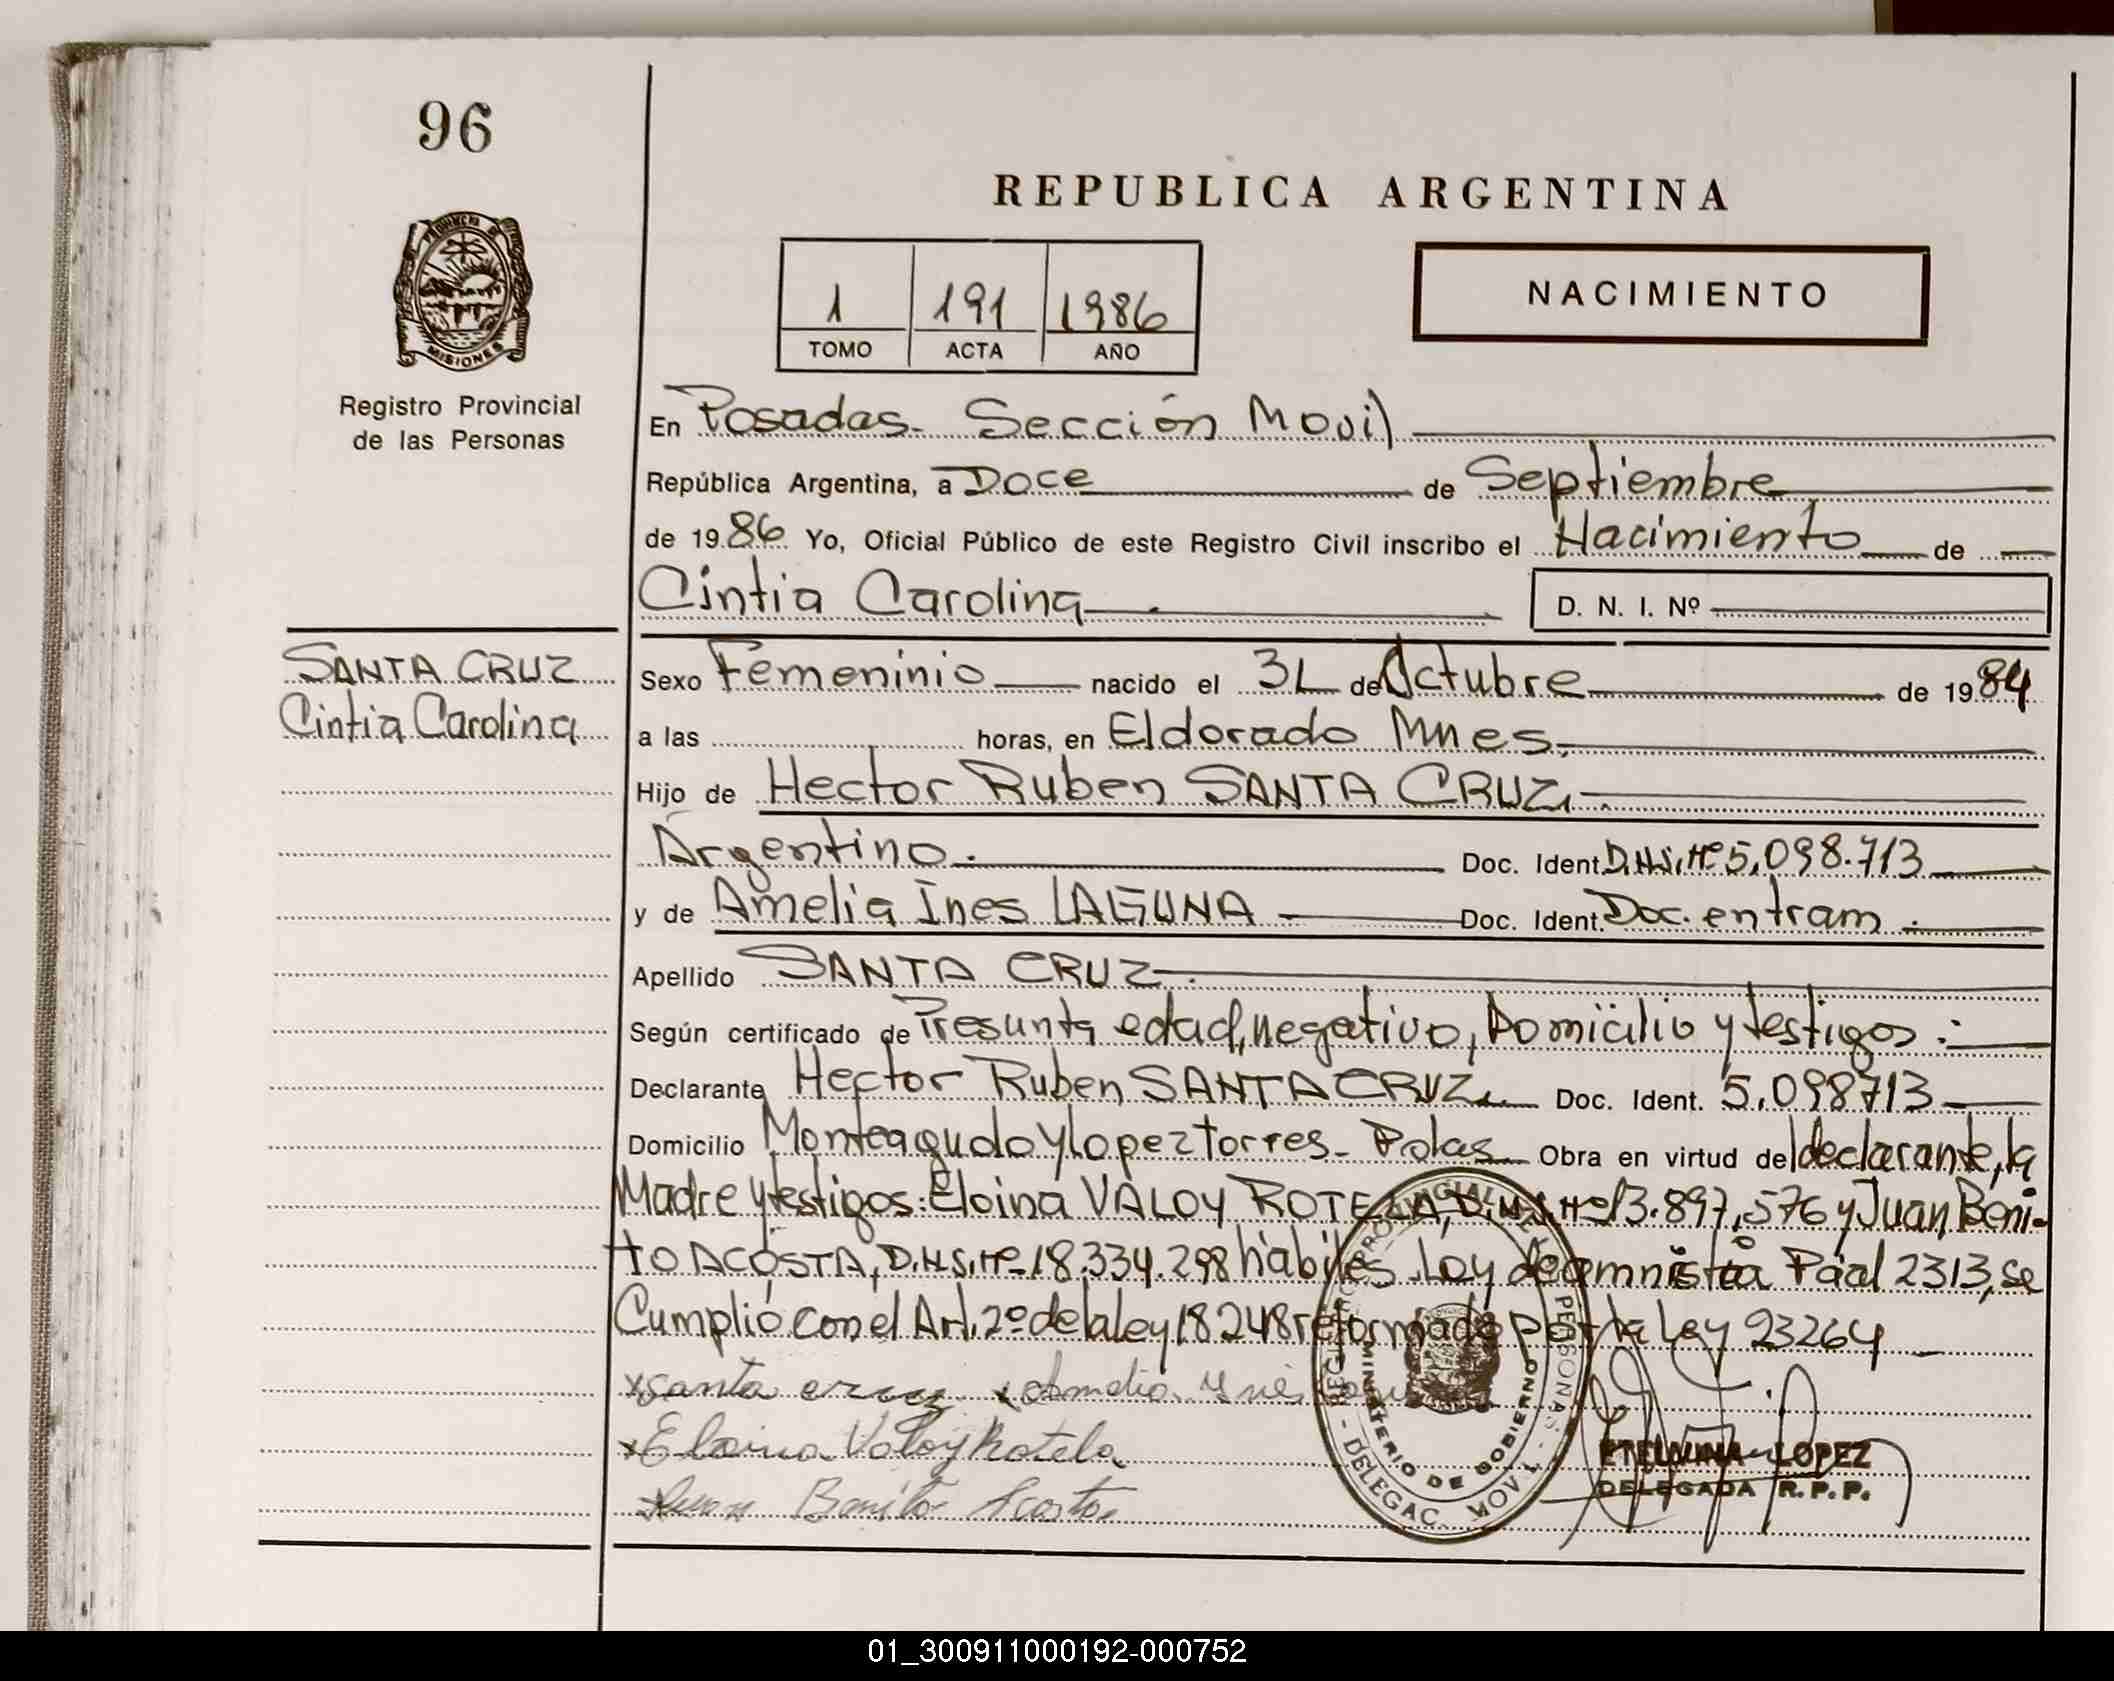 96
REPUBLICA ARGENTINA
PROVINCIA DE
MISIONES
Registro Provincial
de las Personas
1 191 1986
TOMO ACTA AÑO
NACIMIENTO
En Posadas. Sección Movil
República Argentina, a Doce de Septiembre
de 1986 Yo, Oficial Público de este Registro Civil inscribo el Nacimiento de
Cintia Carolina D. N. I. Nº
SANTA CRUZ
Cintia Carolina
Sexo Femeninio nacido el 31 de Octubre de 1984
a las horas, en Eldorado Mnes.
Hijo de Hector Ruben SANTA CRUZ.
Argentino. Doc. Ident. D.N.I. Nº 5.098.713
y de Amelia Ines LAGUNA Doc. Ident. Doc. en tram.
Apellido SANTA CRUZ.
Según certificado de Presunta edad, negativo, Domicilio y testigos:
Declarante Hector Ruben SANTA CRUZ. Doc. Ident. 5.098713
Domicilio Monteagudo y lopez torres - Pdas Obra en virtud del declarante, la
Madre y testigos: Eloina VALOY ROTELA, D.N.I. Nº 13.897.576 y Juan Beni-
to ACOSTA, D.N.I. Nº 18.334.298 hábiles. Ley de amnistia Pcial 2313, se
Cumplió con el Art. 2º de la ley 18248 reformado por la Ley 23264
x santa cruz x Amelia Ynes
x Eloina Valoy Rotela
x Juan Benito Acosta
REGISTRO PROVINCIAL DE LAS PERSONAS - DELEGAC. MOVIL -
MINISTERIO DE GOBIERNO
ETELVINA LOPEZ
DELEGADA R.P.P.
01_300911000192-000752